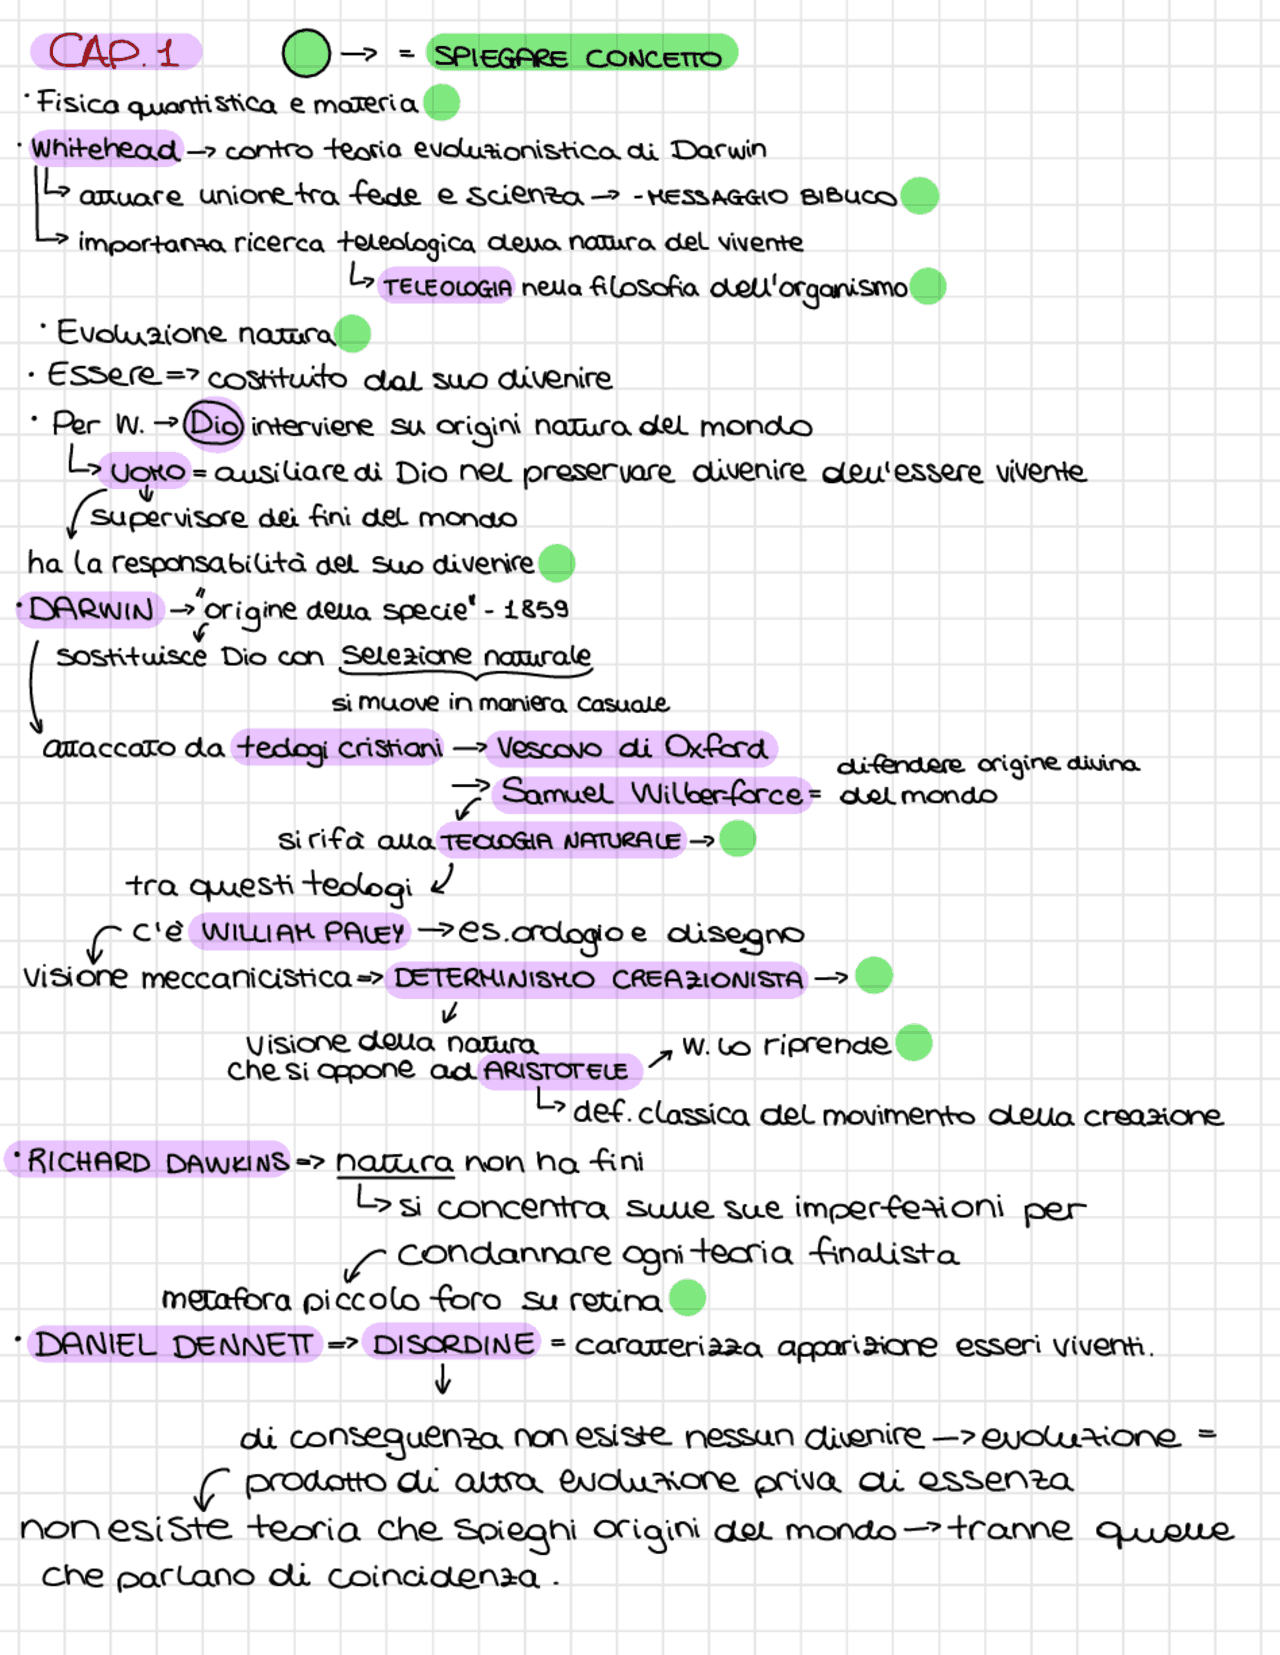 CAP. 1 → = SPIEGARE CONCETTO
· Fisica quantistica e materia
· Whitehead → contro teoria evoluzionistica di Darwin
↳ attuare unione tra fede e scienza → - MESSAGGIO BIBLICO
↳ importanza ricerca teleologica della natura del vivente
↳ TELEOLOGIA nella filosofia dell'organismo
· Evoluzione natura
· Essere => costituito dal suo divenire
· Per W. → Dio interviene su origini natura del mondo
↳ UOMO = ausiliare di Dio nel preservare divenire dell'essere vivente
supervisore dei fini del mondo
ha la responsabilità del suo divenire
· DARWIN → "origine della specie" - 1859
sostituisce Dio con selezione naturale
si muove in maniera casuale
attaccato da teologi cristiani → Vescovo di Oxford
→ Samuel Wilberforce = difendere origine divina
del mondo
si rifà alla TEOLOGIA NATURALE →
tra questi teologi
c'è WILLIAM PALEY → es. orologio e disegno
visione meccanicistica => DETERMINISMO CREAZIONISTA →
visione della natura
che si oppone ad ARISTOTELE ↗ W. lo riprende
↳ def. classica del movimento della creazione
· RICHARD DAWKINS => natura non ha fini
↳ si concentra sulle sue imperfezioni per
condannare ogni teoria finalista
metafora piccolo foro su retina
· DANIEL DENNETT => DISORDINE = caratterizza apparizione esseri viventi.
↓
di conseguenza non esiste nessun divenire → evoluzione =
prodotto di altra evoluzione priva di essenza
non esiste teoria che spieghi origini del mondo → tranne quelle
che parlano di coincidenza.